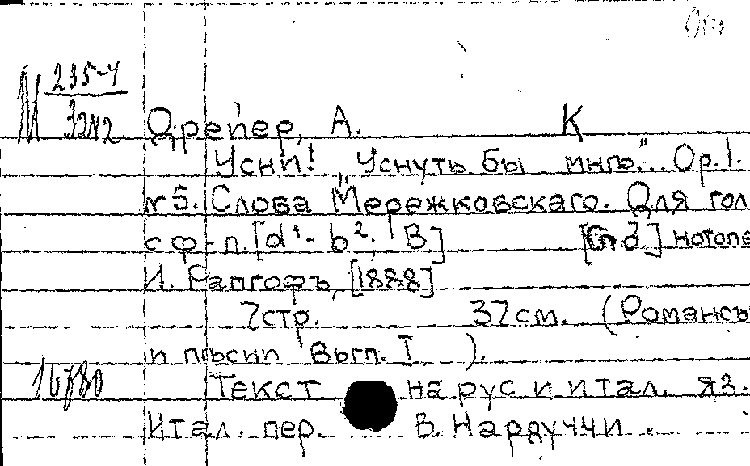 М 235-4
Дрепер, А. К
Усни! "Уснуть бы мнѣ". Ор.1.
№5. Слова Мережковскаго. Для гол
с ф-п. [d¹- b²; В] [СПб] нотопе
И. Рапгофъ, [1888]
7стр. 32см. (Романсы
и пѣсни Вып. I ).
16780 Текст на рус и итал. яз.
Итал. пер. В. Нардуччи.